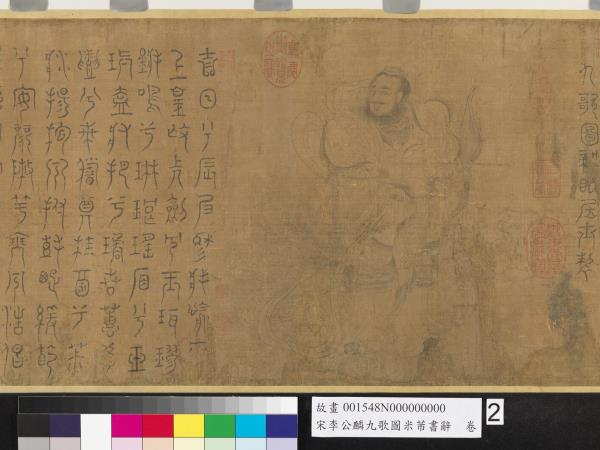 九歌圖龍眠居士製
吉日兮辰良穆將愉兮
上皇撫長劍兮玉珥璆
鏘鳴兮琳琅瑤席兮玉
瑱盍將把兮瓊芳蕙肴
蒸兮蘭藉奠桂酒兮椒
漿揚枹兮拊鼓疏緩節
兮安歌陳竽瑟兮浩倡
故畫 001548N000000000
宋李公麟九歌圖米芾書辭 卷
2